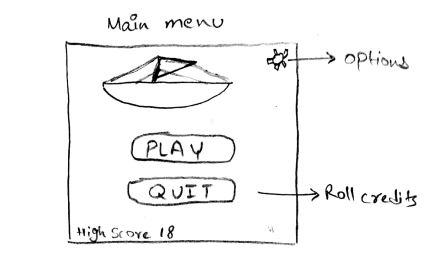 Main menu
options
PLAY
QUIT
Roll credits
High Score 18